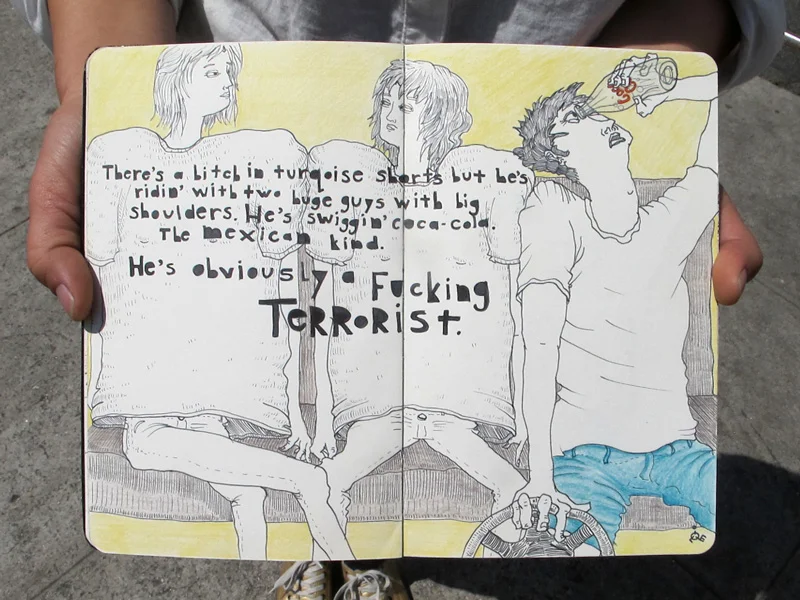 There's a bitch in turqoise shorts but he's
ridin' with two huge guys with big
shoulders. He's swiggin' coca-cola.
The mexican kind.
He's obviously a Fucking
TERRORIST.